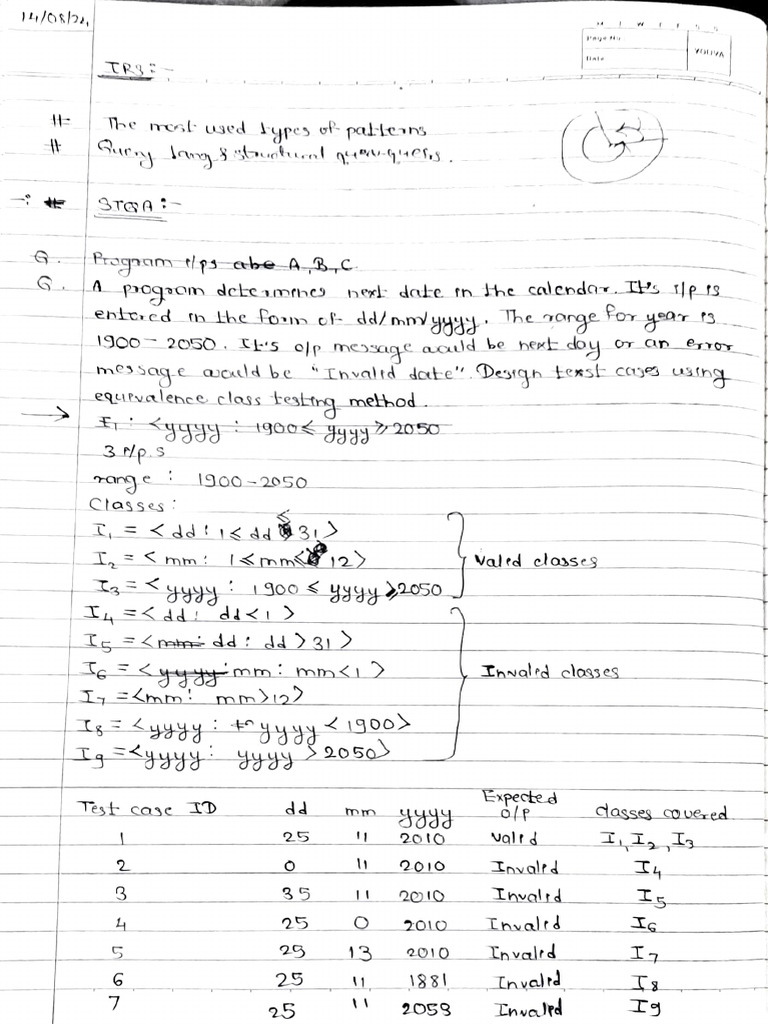 14/08/24
Page No
Date
YOUVA
IRS:-
# The most used types of patterns
# Query lang & structural queries.
STQA:-
Q. Program i/ps abc A, B, C
Q. A program determines next date in the calendar. It's i/p is
entered in the form of dd/mm/yyyy. The range for year is
1900-2050. It's o/p message would be next day or an error
message would be "Invalid date". Design test cases using
equivalence class testing method.
→ I1: <yyyy : 1900 ≤ yyyy ≥ 2050
3 i/p s
range : 1900-2050
Classes:
I1 = <dd : 1 ≤ dd ≤ 31>
I2 = <mm : 1 ≤ mm ≤ 12>
Valid classes
I3 = <yyyy : 1900 ≤ yyyy ≥ 2050
I4 = <dd : dd < 1>
I5 = <mm: dd : dd > 31>
I6 = <yyyy mm : mm < 1>
Invalid classes
I7 = <mm : mm > 12>
I8 = <yyyy : yyyy < 1900>
I9 = <yyyy : yyyy > 2050>
Test case ID dd mm yyyy Expected o/p classes covered
1 25 11 2010 Valid I1, I2, I3
2 0 11 2010 Invalid I4
3 35 11 2010 Invalid I5
4 25 0 2010 Invalid I6
5 25 13 2010 Invalid I7
6 25 11 1881 Invalid I8
7 25 11 2059 Invalid I9